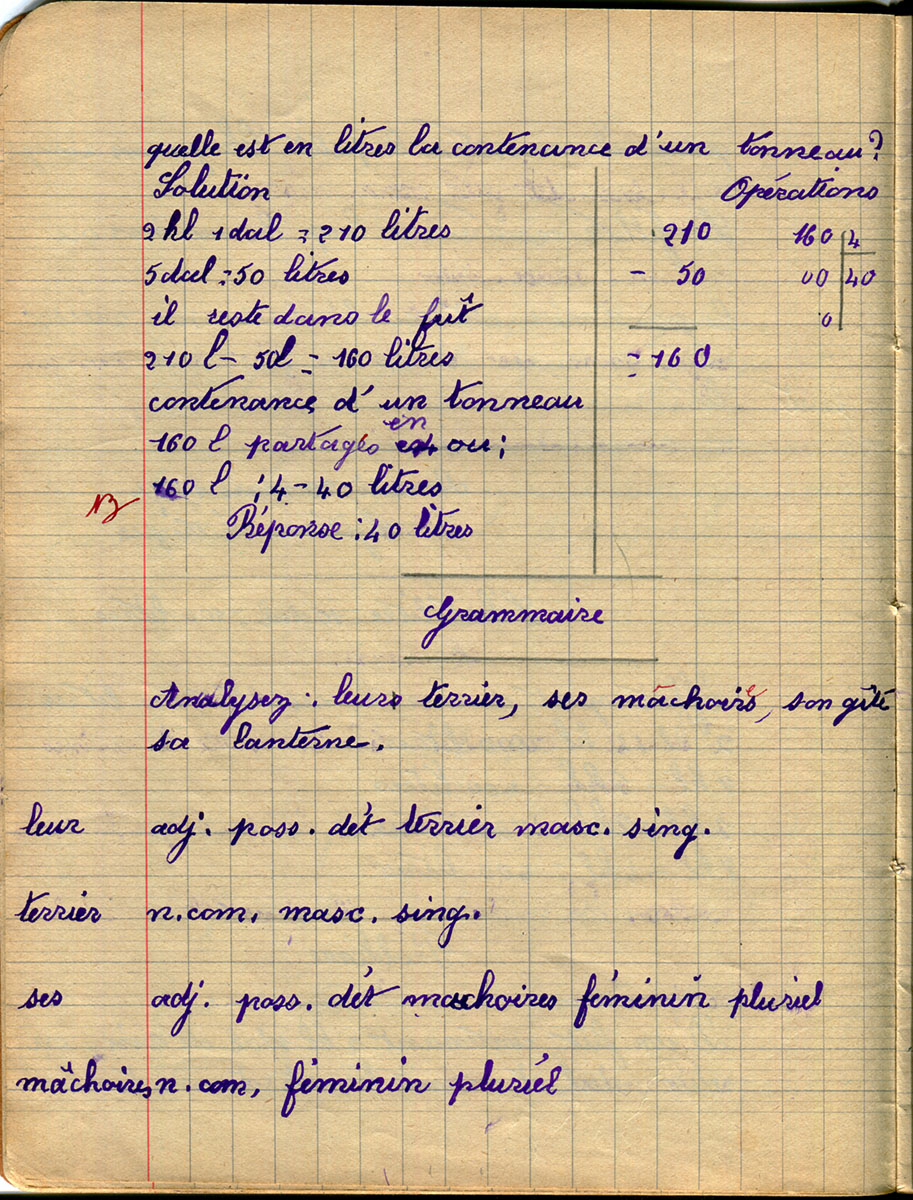 quelle est en litres la contenance d'un tonneau?
Solution Opérations
2 hl 1 dal = 210 litres 210 160 4
5 dal = 50 litres - 50 00 40
il reste dans le fût 0
210 l - 50l = 160 litres = 160
contenance d'un tonneau
en
160 l partagés ou;
160 l : 4 - 40 litres
B
Réponse : 40 litres
Grammaire
Analysez : leurs terrier, ses mâchoires, son gîte
sa lanterne.
leur adj. poss. dét terrier masc. sing.
terrier n.com. masc. sing.
ses adj. poss. dét machoires féminin pluriel
mâchoires n.com, féminin pluriel